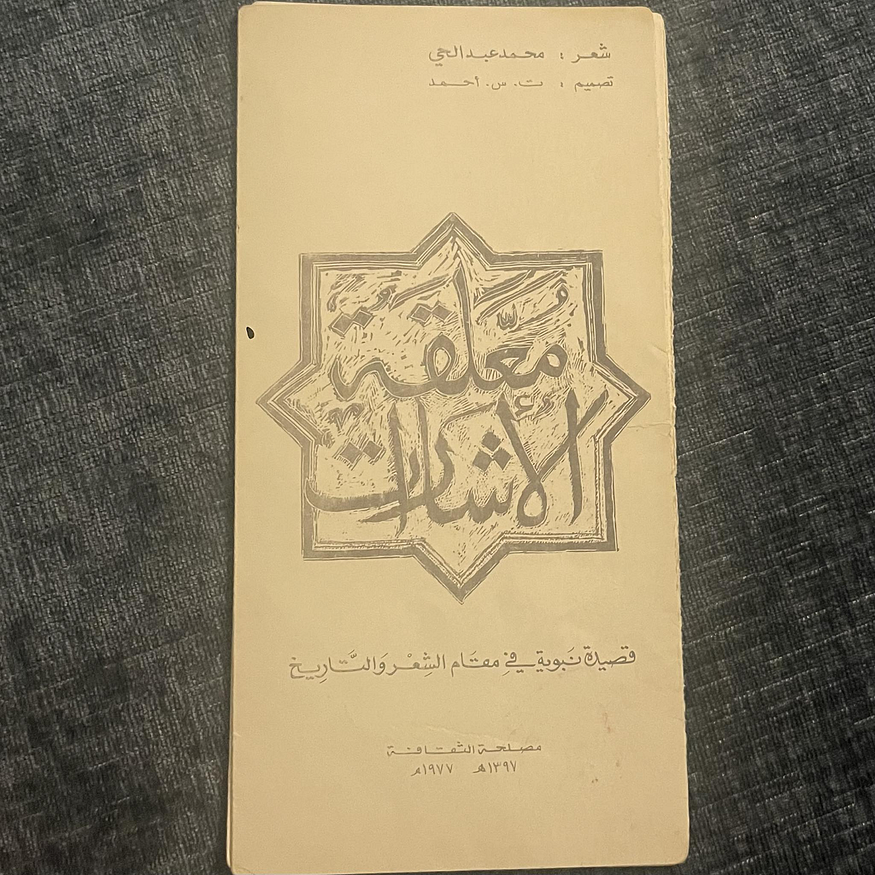 شعر : محمد عبد الحي
تصميم : ت. س. أحمد
مُعَلَّقة
الإشارات
قصيدة نَبوية في مقَام الشِعْر وَالتَّارِيخ
مصلحة الثقافة
١٣٩٧هـ ١٩٧٧م